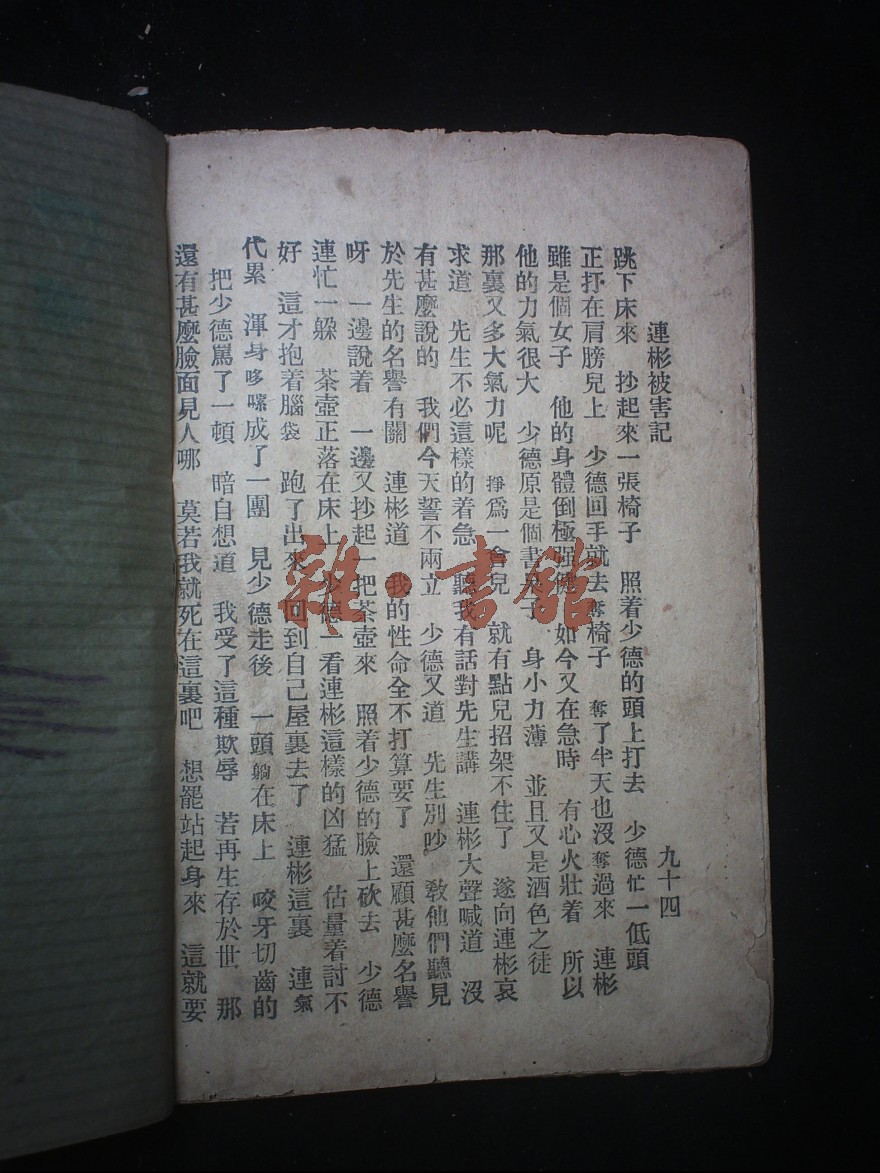 連彬被害記 九十四
跳下床來 抄起來一張椅子 照着少德的頭上打去 少德忙一低頭
正抙在肩膀兒上 少德回手就去奪椅子 奪了半天也沒奪過來 連彬
雖是個女子 他的身體倒極强健 如今又在急時 有心火壯着 所以
他的力氣很大 少德原是個書呆子 身小力薄 並且又是酒色之徒
那裏又多大氣力呢 掙爲一會兒 就有點兒招架不住了 遂向連彬哀
求道 先生不必這樣的着急 聽我有話對先生講 連彬大聲喊道 沒
有甚麼說的 我們今天誓不兩立 少德又道 先生別吵 敎他們聽見
於先生的名譽有關 連彬道 我的性命全不打算要了 還顧甚麼名譽
呀 一邊說着 一邊又抄起一把茶壺來 照着少德的臉上砍去 少德
連忙一躲 茶壺正落在床上 少德一看連彬這樣的凶猛 估量着討不
好 這才抱着腦袋 跑了出來 回到自己屋裏去了 連彬這裏 連氣
代累 渾身哆嗦成了一團 見少德走後 一頭躺在床上 咬牙切齒的
把少德罵了一頓 暗自想道 我受了這種欺辱 若再生存於世 那
還有甚麼臉面見人哪 莫若我就死在這裏吧 想罷站起身來 這就要
雜·書館